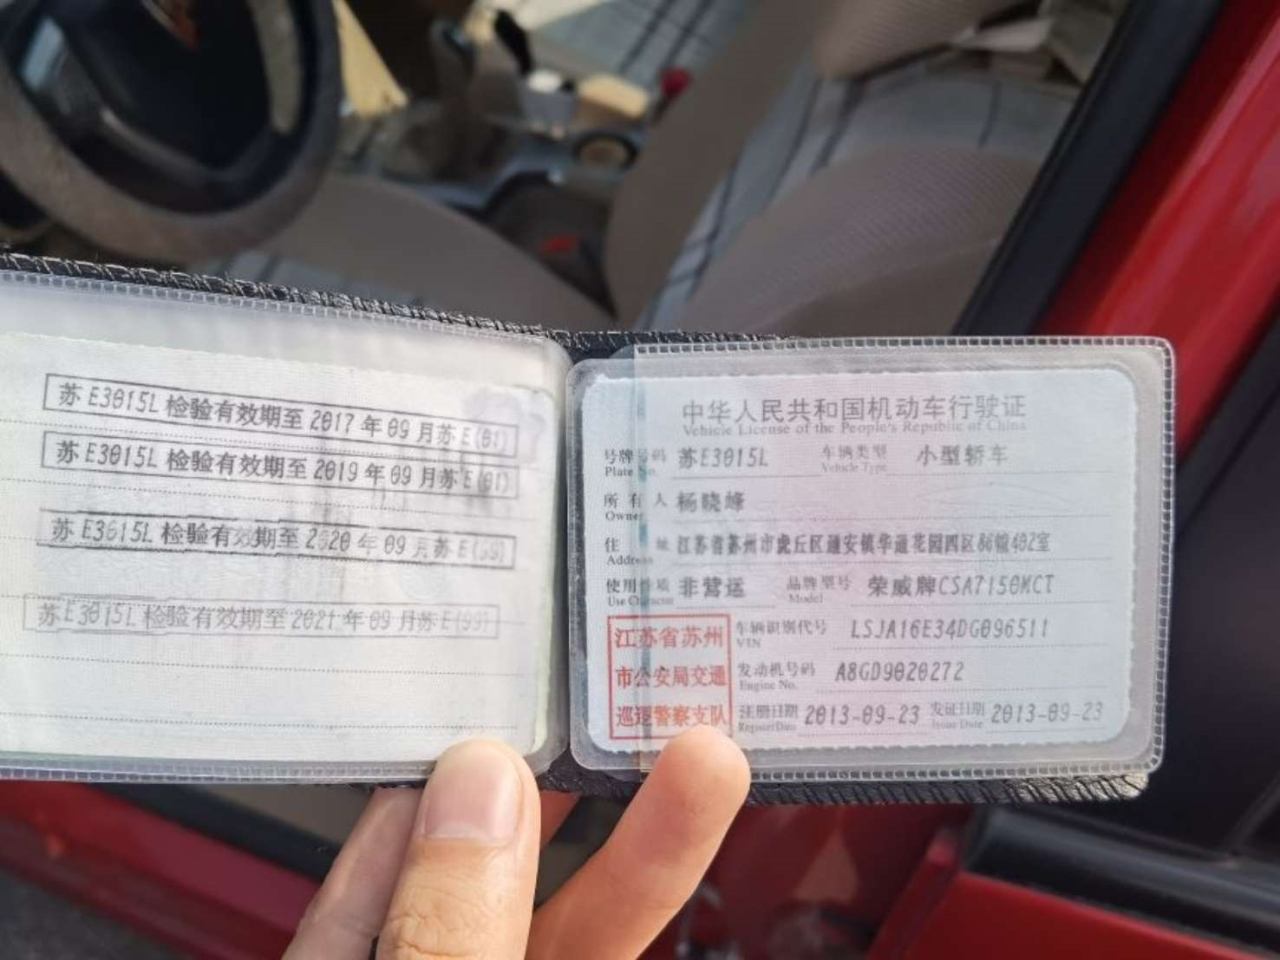 苏E3015L 检验有效期至 2017 年 09 月苏 E(01)
苏E3015L 检验有效期至 2019 年 09 月苏 E(01)
苏E3015L 检验有效期至 2020 年 09 月苏 E(99)
苏E3015L 检验有效期至 2021 年 09 月苏 E(99)
中华人民共和国机动车行驶证
Vehicle License of the People's Republic of China
号牌号码 苏E3015L 车辆类型 小型轿车
Plate No. Vehicle Type
所有人 杨晓峰
Owner
住址 江苏省苏州市虎丘区通安镇华通花园四区86幢402室
Address
使用性质 非营运 品牌型号 荣威牌CSA7150MCT
Use Character Model
江苏省苏州 车辆识别代号 LSJA16E34DG096511
VIN
市公安局交通 发动机号码 A8GD9020272
Engine No.
巡逻警察支队 注册日期 2013-09-23 发证日期 2013-09-23
Register Date Issue Date